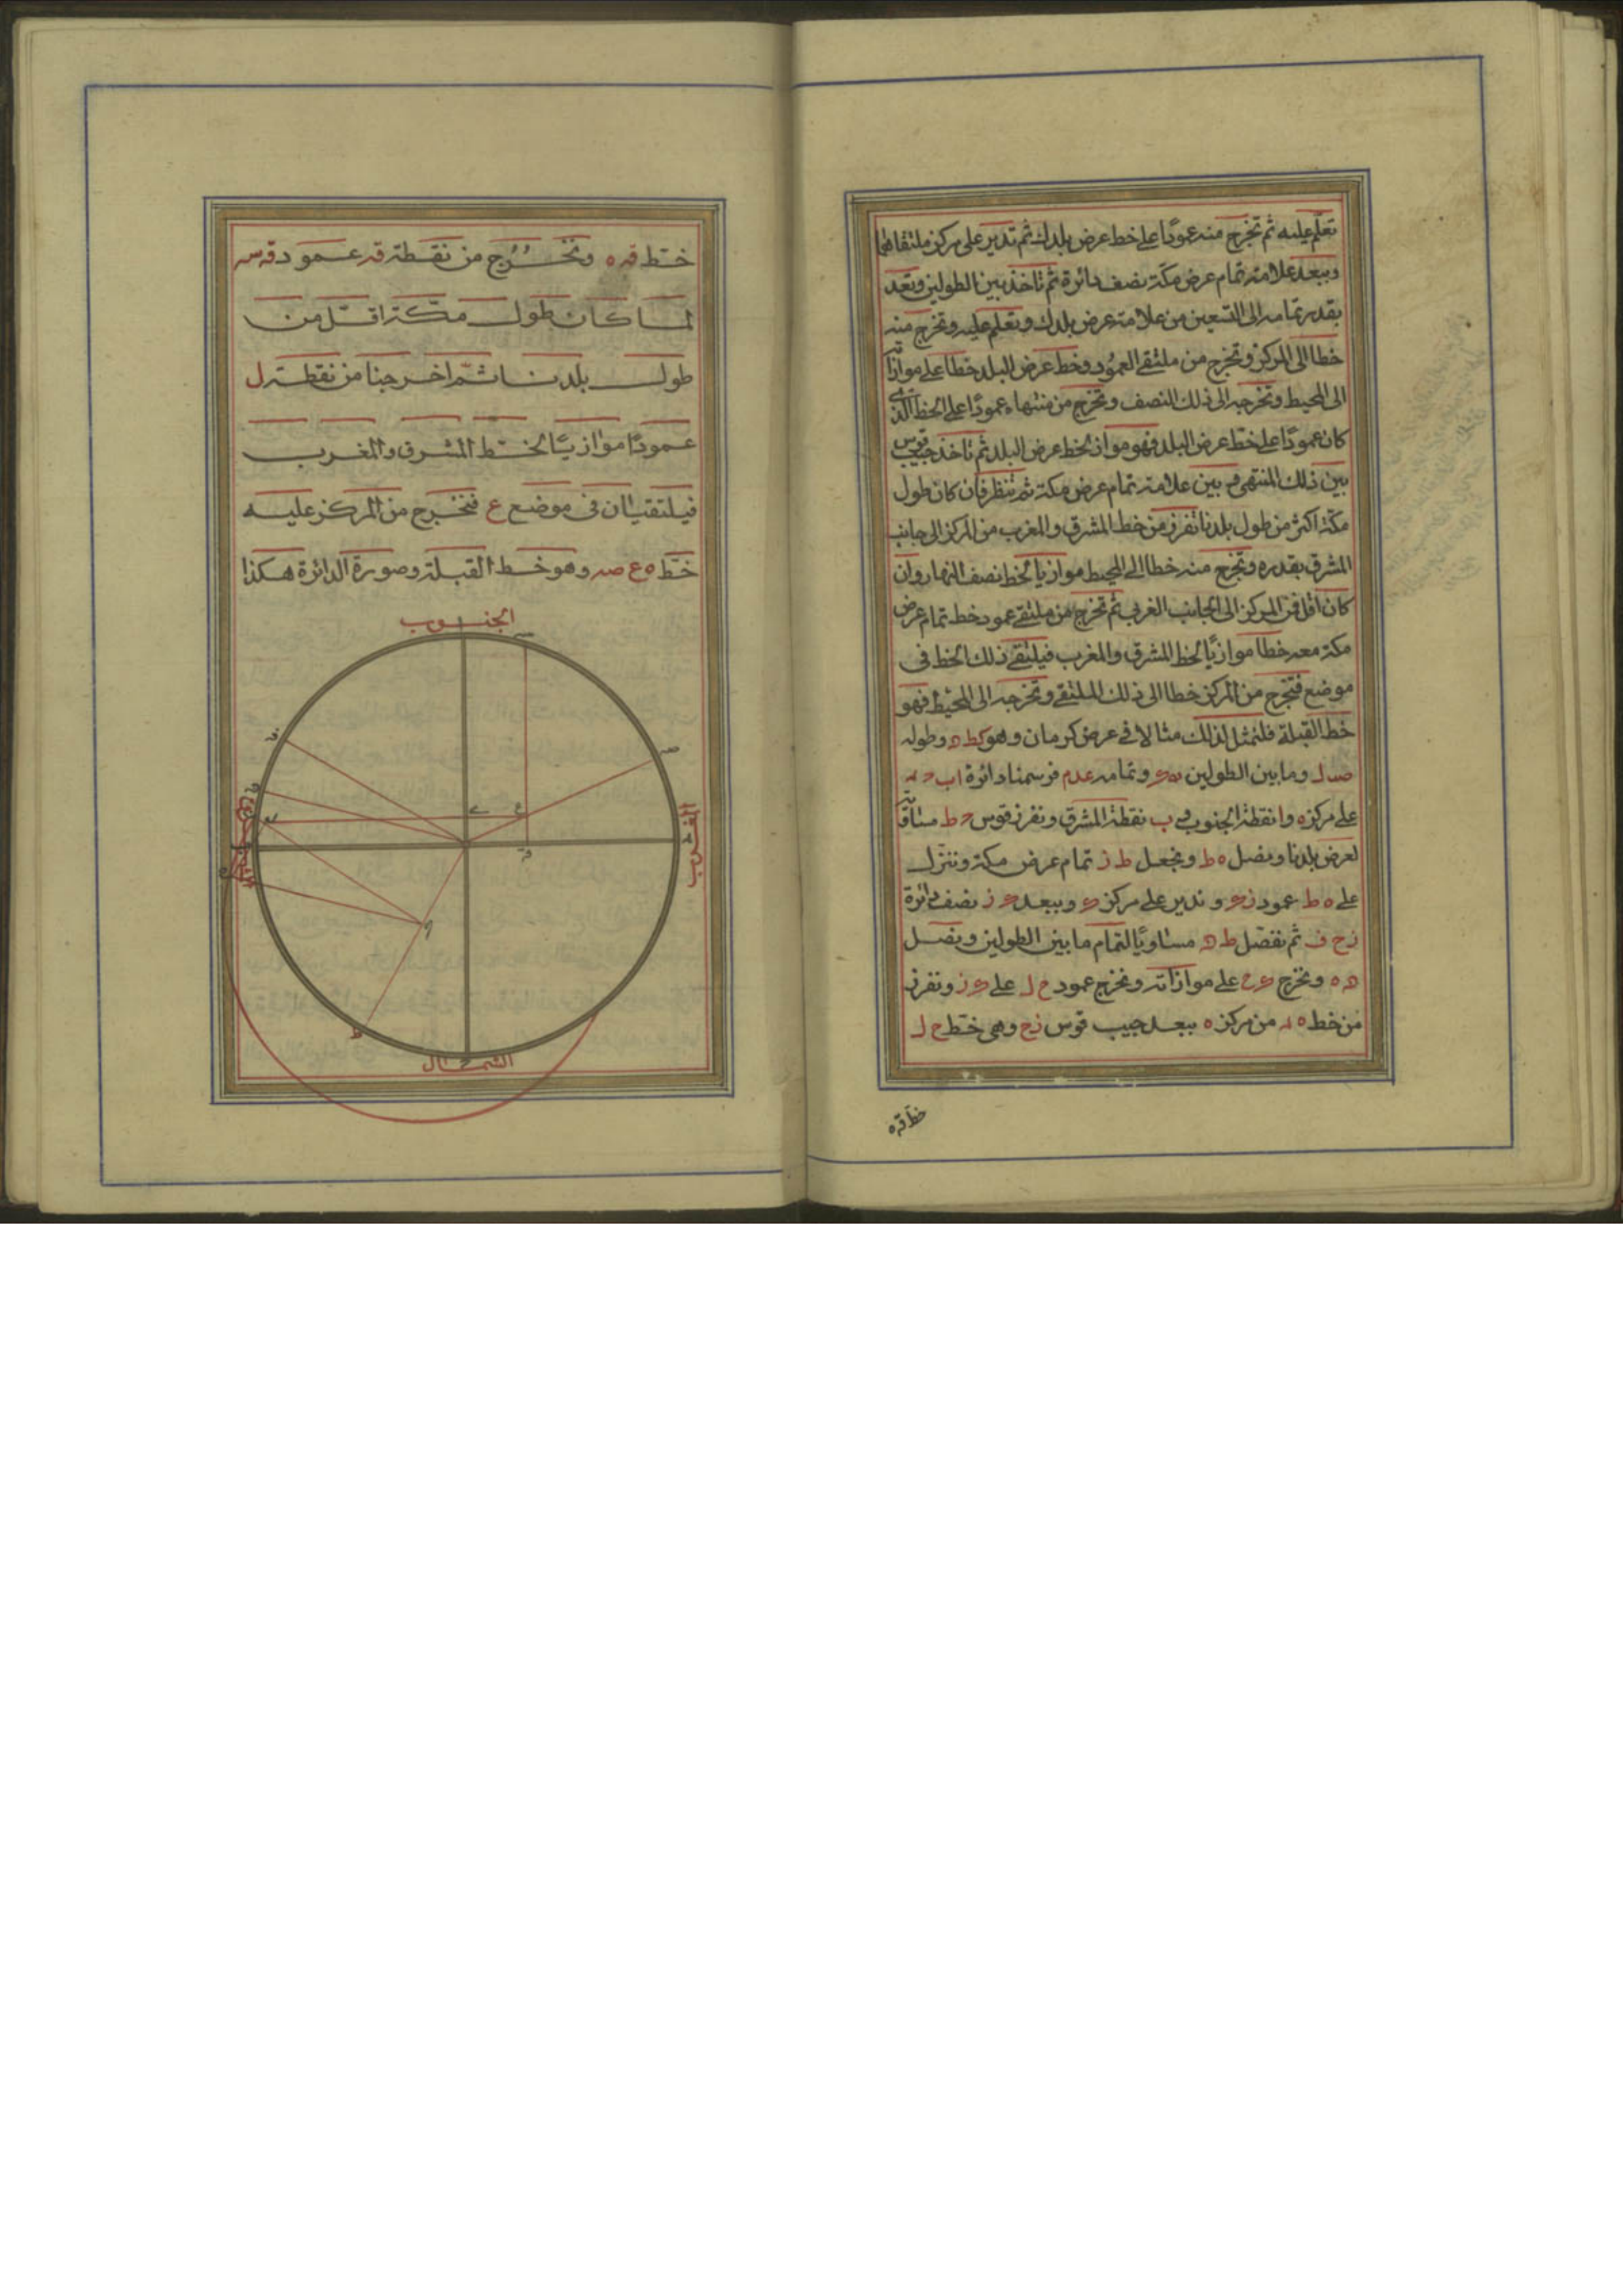 تعلّم عليه ثم تخرج منه عمودًا على خط عرض بلدك ثم تدير على مركز ملتقاهما
وببعد علامة تمام عرض مكة نصف دائرة ثم تاخذ بين الطولين وتعد
بقدر تمامه الى التسعين من علامة عرض بلدك وتعلم عليه وتخرج منه
خطا الى المركز وتخرج من ملتقى العمود وخط عرض البلد خطا على موازاته
الى المحيط وتخرجه الى ذلك النصف وتخرج من منتهاه عمودًا على الخط الذي
كان عمودًا على خط عرض البلد فهو مواز لخط عرض البلد ثم تاخذ جيب قوس
بين ذلك المنتهى وبين علامة تمام عرض مكة ثم تنظر فان كان طول
مكة اكثر من طول بلدنا تفرز من خط المشرق والمغرب من المركز الى جانب
المشرق بقدره وتخرج منه خطا الى المحيط موازيا لخط نصف النهار وان
كان اقل فمن المركز الى الجانب الغربي ثم تخرج من ملتقى عمود خط تمام عرض
مكة معه خطا موازيًا لخط المشرق والمغرب فيلتقى ذلك الخط فى
موضع فتخرج من المركز خطا الى ذلك الملتقى وتخرجه الى المحيط فهو
خط القبلة فلنمثل لذلك مثالا فى عرض كرمان وهو كط ه وطوله
صد ل وما بين الطولين وتمامه فرسمنا دائرة اب ح د
على مركز ه وا نقطة الجنوب وب نقطة المشرق ونفرز قوس ح ط مساوية
لعرض بلدنا ونصل ه ط ونجعل ط ز تمام عرض مكة وننزل
على ه ط عمود زى وندير على مركز ى وببعد ى ز نصف دائرة
زح ف ثم نفصل ط ك مساويًا لتمام ما بين الطولين ونصل
ك ه ونخرج ى ح على موازاته ونخرج عمود ح ل على ى ز ونفرز
من خط ه د من مركز ه ببعد جيب قوس زح وهى خط ح ل
خط قه ه
خط قه ه ونخرج من نقطة قه عمود قه س
لما كان طول مكة اقل من
طول بلدنا ثم اخرجنا من نقطة ل
عمودًا موازيًا لخط المشرق والمغرب
فيلتقيان فى موضع ع فنخرج من المركز عليه
خط ه ع صه وهو خط القبلة وصورة الدائرة هكذا
الجنوب
المغرب
المشرق
الشمال